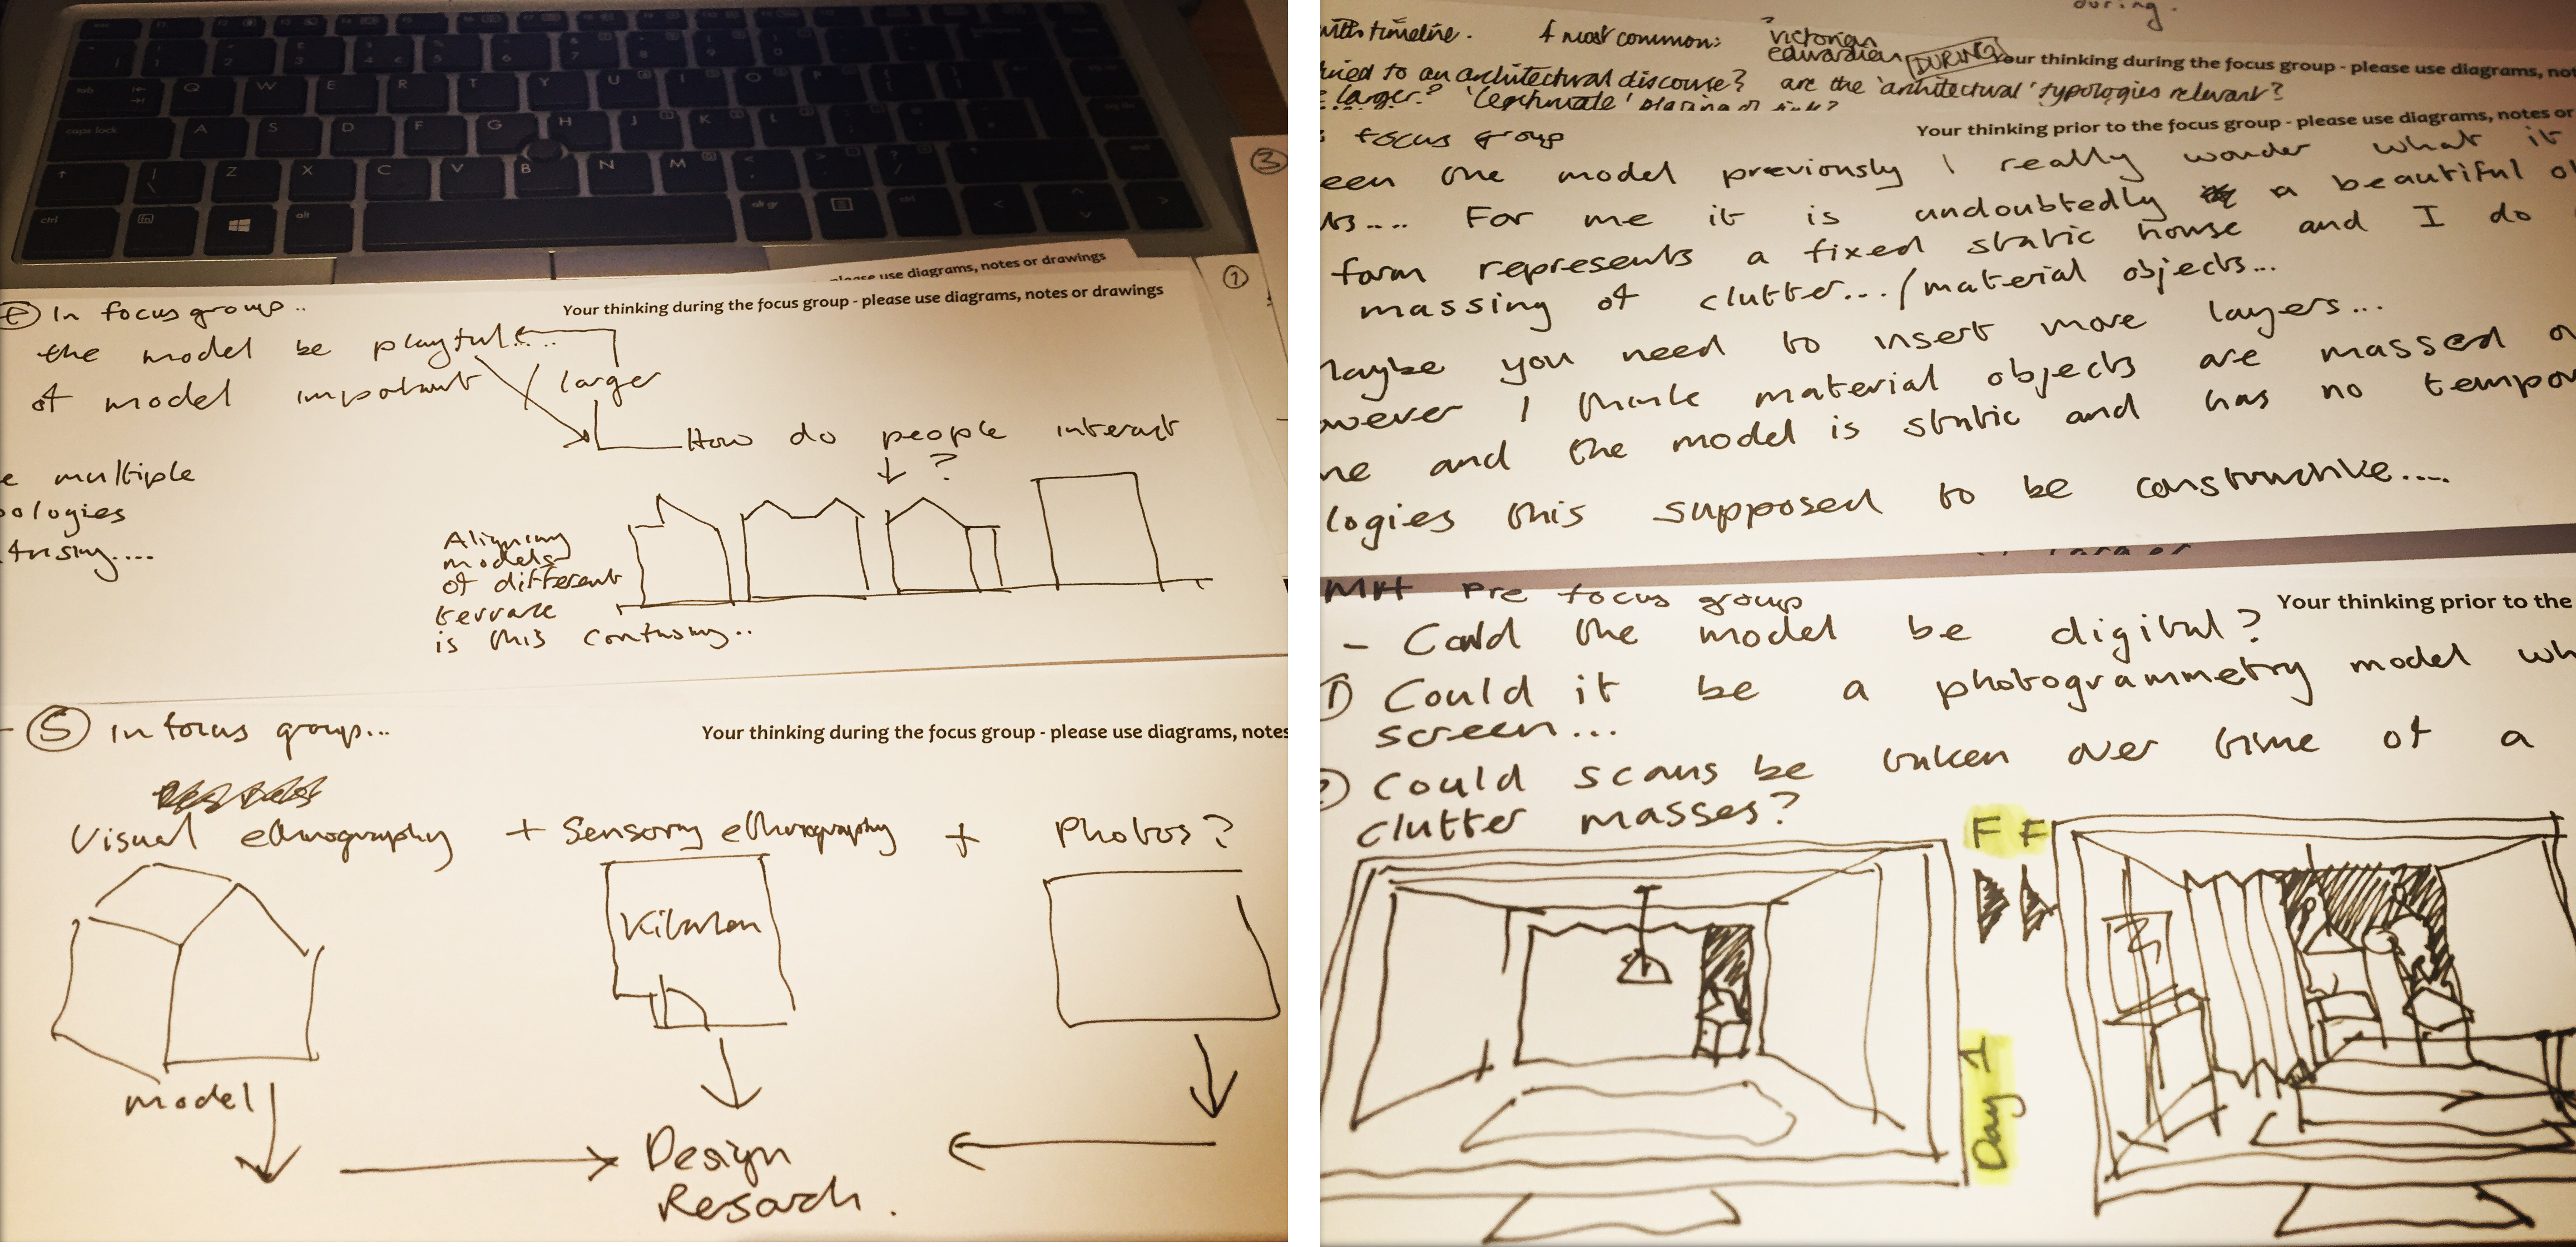 please use diagrams, notes or drawings
In focus group..
Your thinking during the focus group - please use diagrams, notes or drawings
1
the model be playful....
of model important
larger
How do people interact
?
multiple
ologies
Aligning
models
of different
terrace
is this confusing..
5 In focus group...
Your thinking during the focus group - please use diagrams, notes
Visual ethnography + Sensory ethnography + Photos?
Kitchen
model
Design
Research.
3
during.
with timeline. 4 most common: victorian
edwardian
DURING
Your thinking during the focus group - please use diagrams, not
tied to an architectural discourse? are the 'architectural' typologies relevant?
larger? 'legitimate'
focus group
Your thinking prior to the focus group - please use diagrams, notes or
een one model previously I really wonder what it
.... For me it is undoubtedly a beautiful
form represents a fixed static house and I do
massing of clutter.../material objects...
Maybe you need to insert more layers...
wever I think material objects are massed
and the model is static and has no tempor
logies this supposed to be constructive....
MH Pre focus group
Your thinking prior to the
- Could the model be digital?
1 Could it be a photogrammetry model wh
screen...
2 Could scans be taken over time of a
clutter masses?
FF
Day 1